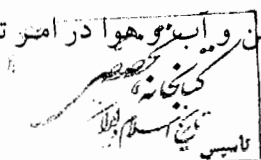 ن و آب و هوا در امر ت
کتابخانه
تاریخ اسلام و ایران
تاسیس